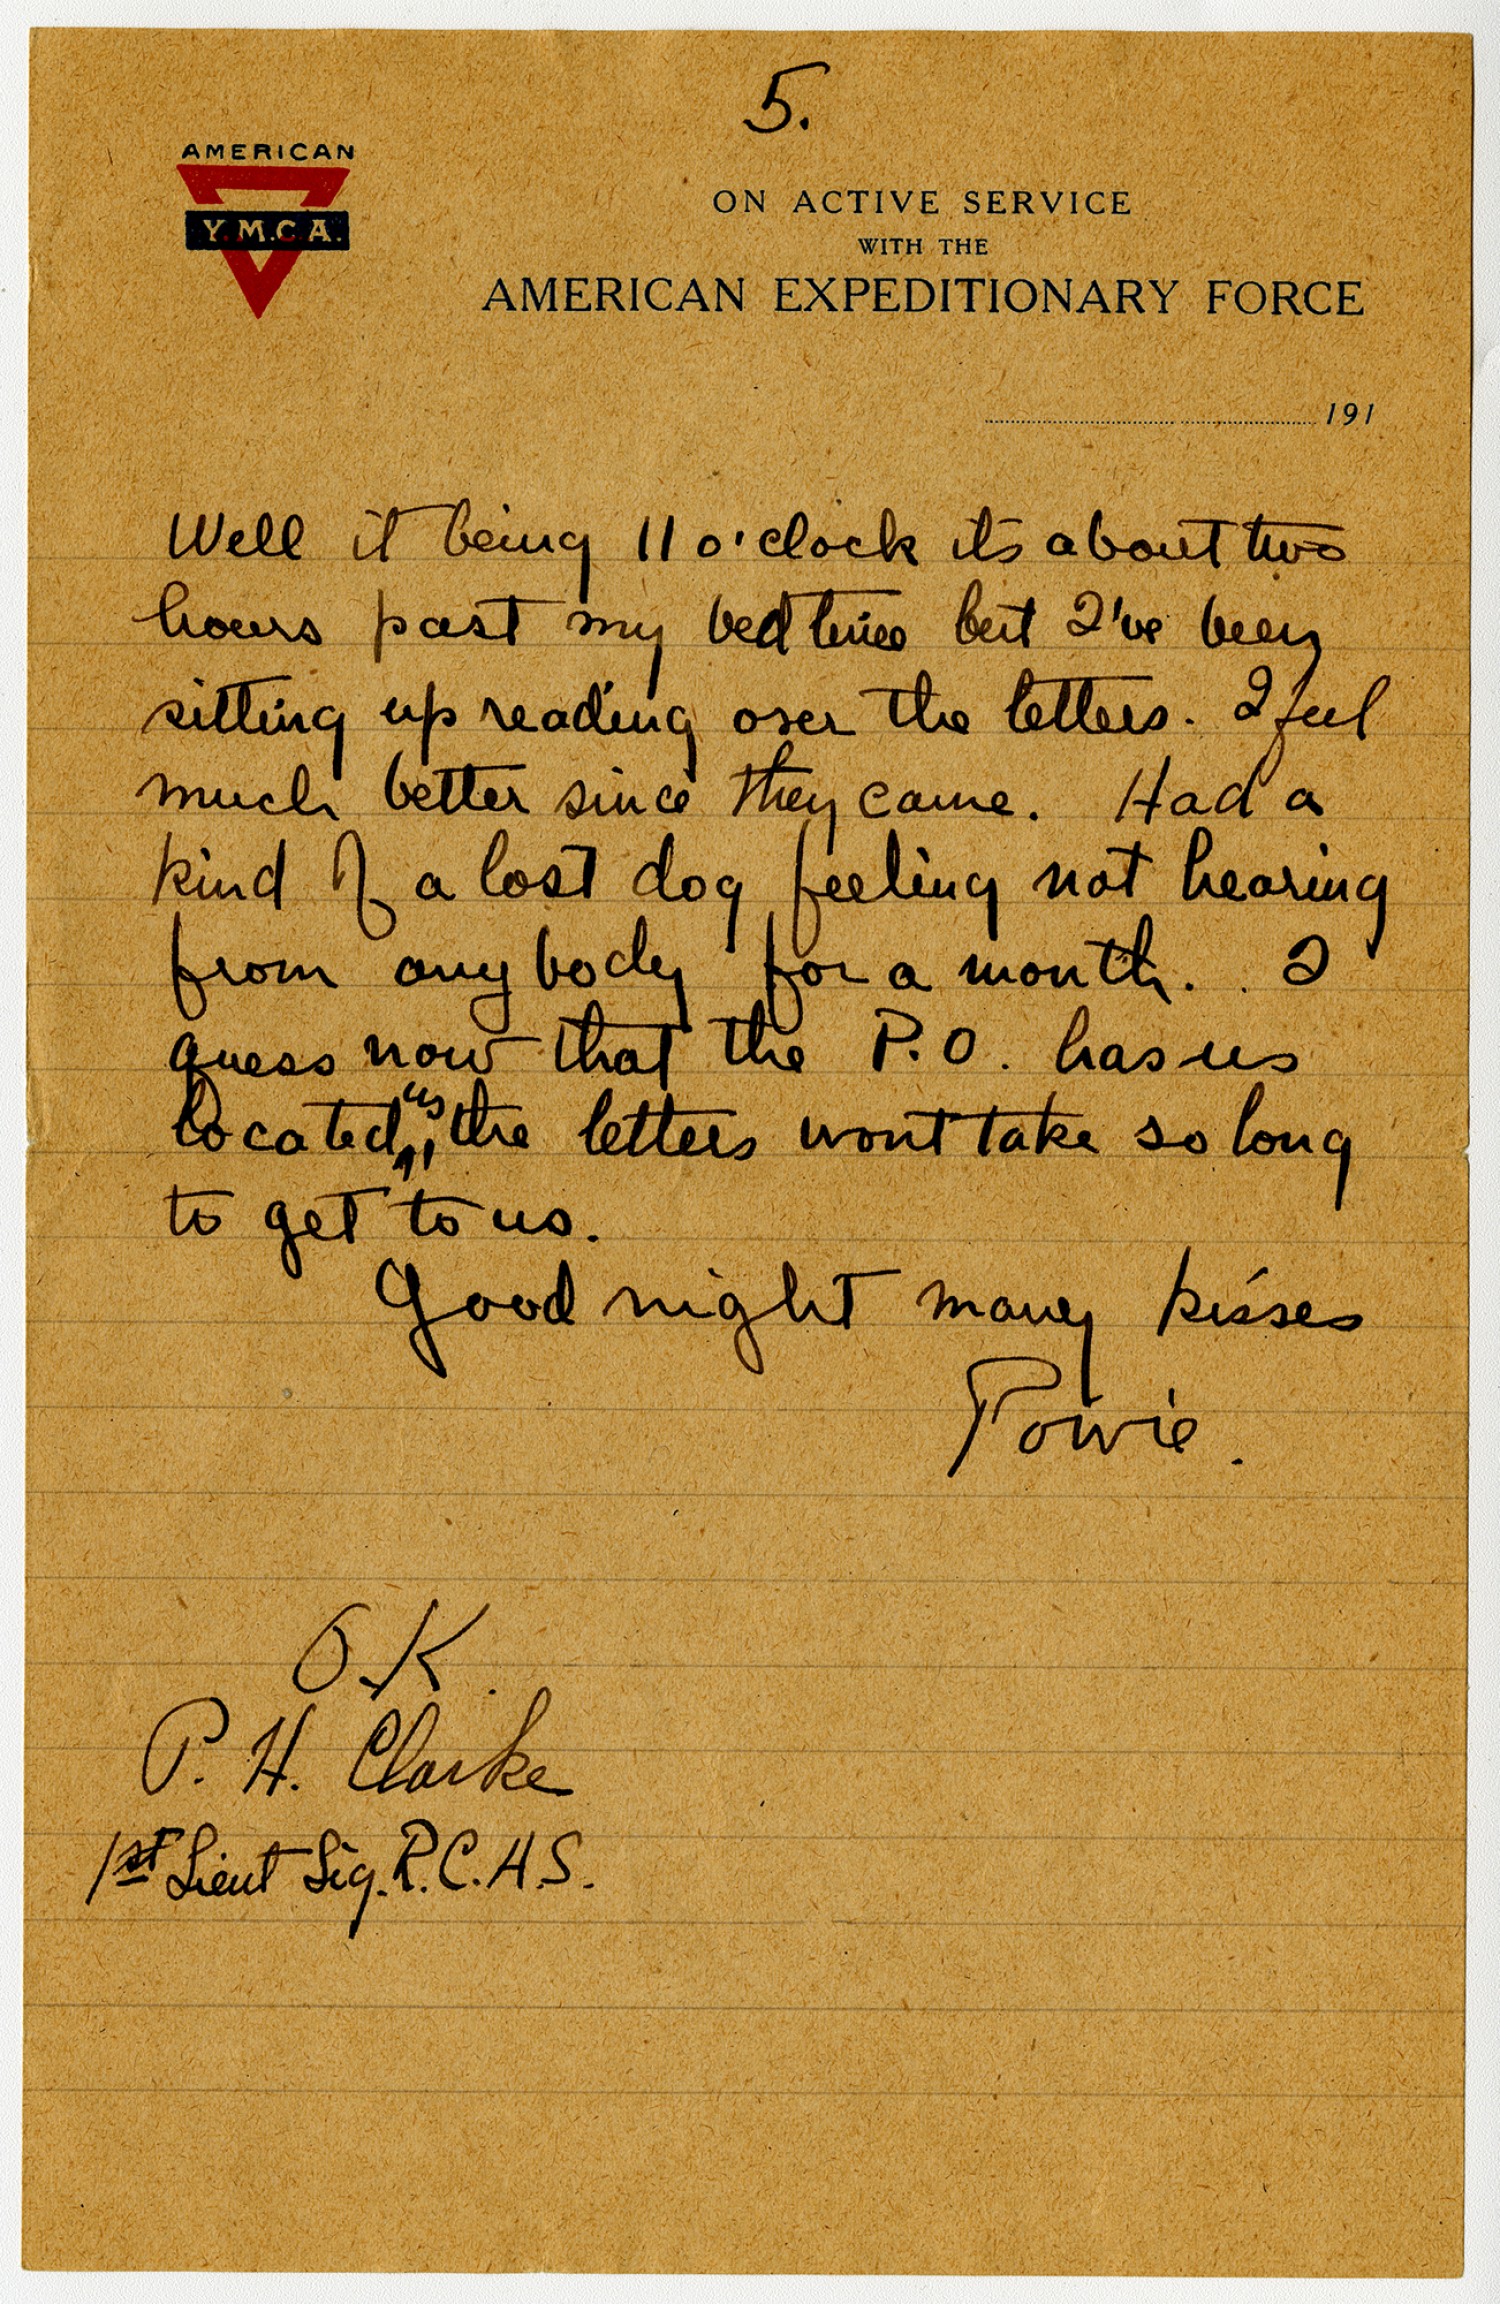 5.
AMERICAN
Y.M.C.A.
ON ACTIVE SERVICE
WITH THE
AMERICAN EXPEDITIONARY FORCE
191
Well it being 11 o'clock its about two
hours past my bedtime but I've been
sitting up reading over the letters. I feel
much better since they came. Had a
kind of a lost dog feeling not hearing
from anybody for a month. I
guess now that the P.O. has us
located, "us" the letters wont take so long
to get to us.
Good night many kisses
Powie.
O.K.
P. H. Clarke
1st Lieut Sig. R.C. A.S.